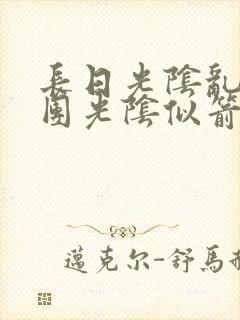 長日光陰亂
團光陰似箭
邁克尔-舒馬赫